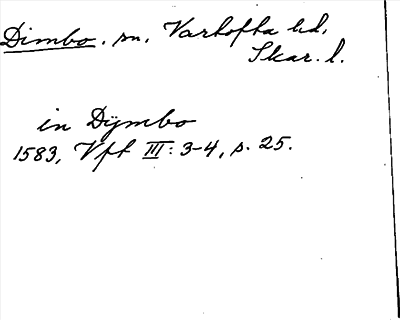 Dimbo. sn. Vartofta hd.
Skar. l.
in Dÿmbo
1583, Vft III: 3-4, s. 25.